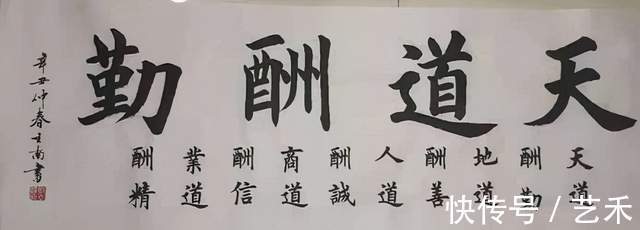 天道酬勤
天道
酬勤
地道
酬善
人道
酬誠
商道
酬信
業道
酬精
辛丑仲春書
快传号 / 艺禾